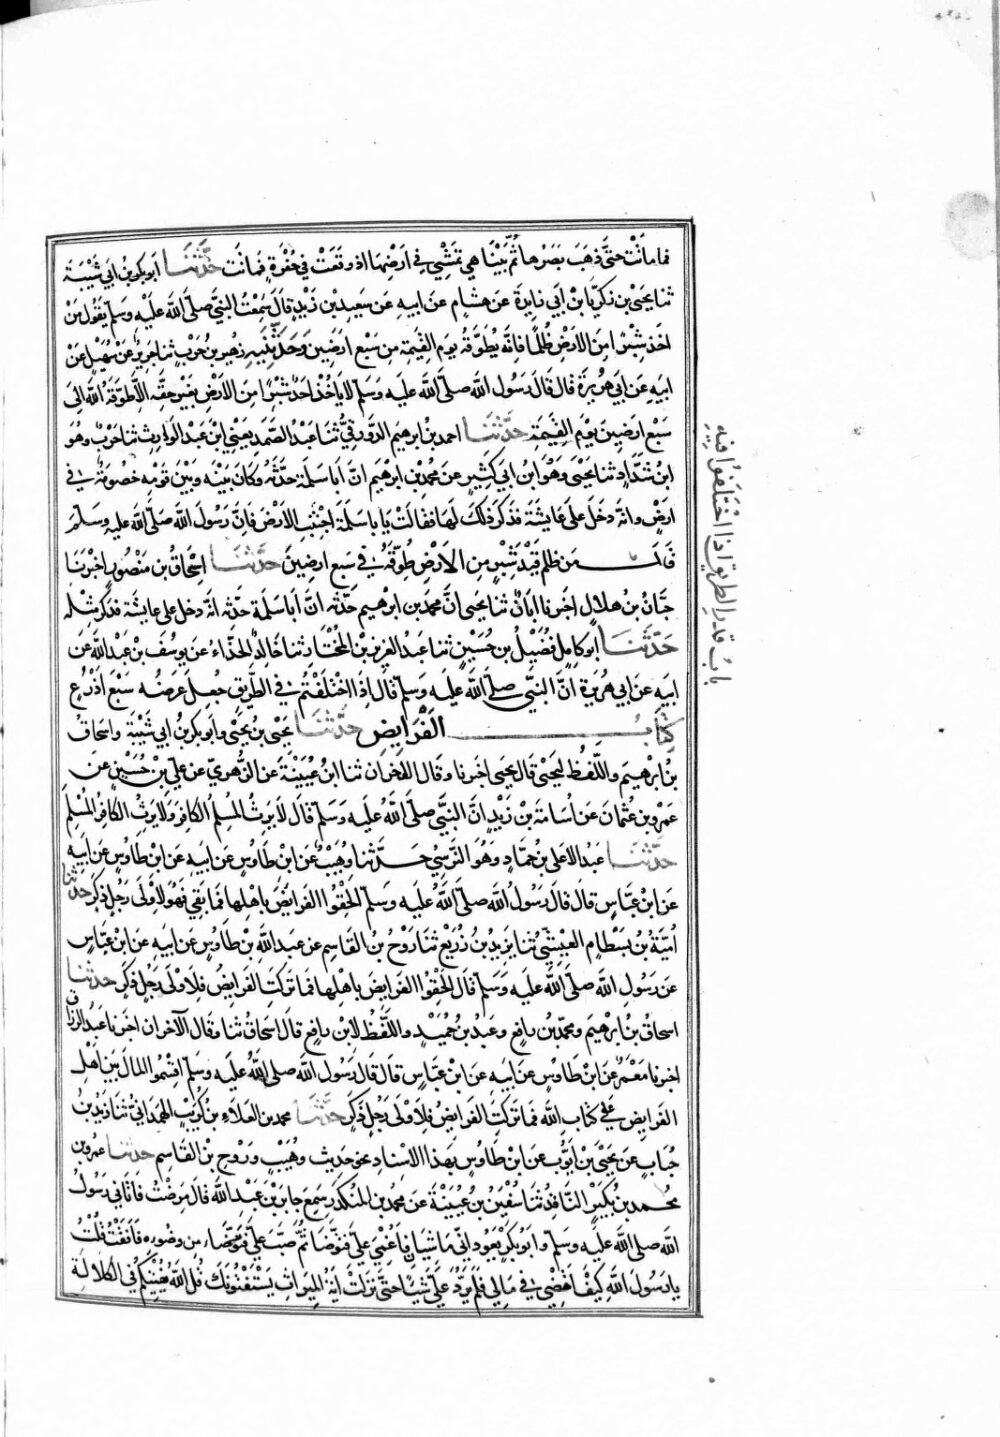 فما ماتت حتى ذهب بصرها ثم بينا هي تمشي في ارضها اذ وقعت في حفرة فماتت حدثنا ابو بكر بن ابي شيبة
ثنا يحيى بن زكريا بن ابي زايدة عن هشام عن ابيه عن سعيد بن زيد قال سمعت النبي صلى الله عليه وسلم يقول من
اخذ شبرا من الارض ظلما فانه يطوقه يوم القيمة من سبع ارضين وحدثنيه زهير بن حرب ثنا جرير عن سهيل عن
ابيه عن ابي هريرة قال قال رسول الله صلى الله عليه وسلم لا ياخذ احد شبرا من الارض بغير حقه الا طوقه الله الى
سبع ارضين يوم القيمة حدثنا احمد بن ابرهيم الدورقي ثنا عبد الصمد يعني ابن عبد الوارث ثنا حرب وهو
ابن شداد ثنا يحيى وهو ابن ابي كثير عن محمد بن ابرهيم ان ابا سلمة حدثه وكان بينه وبين قومه خصومة في
ارض وانه دخل على عايشة فذكر ذلك لها فقالت يا با سلمة اجتنب الارض فان رسول الله صلى الله عليه وسلم
قال من ظلم قيد شبر من الارض طوقه في سبع ارضين حدثنا اسحاق بن منصور اخبرنا
حبان بن هلال اخبرنا ابان ثنا يحيى ان محمد بن ابرهيم حدثه ان ابا سلمة حدثه انه دخل على عايشة فذكر مثله
حدثنا ابو كامل فضيل بن حسين ثنا عبد العزيز بن المختار ثنا خالد الحذاء عن يوسف بن عبد الله عن
ابيه عن ابي هريرة ان النبي صلى الله عليه وسلم قال اذا اختلفتم في الطريق جعل عرضه سبع اذرع
كتاب الفرايض حدثنا يحيى بن يحيى وابو بكر بن ابي شيبة واسحاق
بن ابرهيم واللفظ ليحيى قال يحيى اخبرنا وقال الاخران ثنا ابن عيينة عن الزهري عن علي بن حسين عن
عمرو بن عثمان عن اسامة بن زيد ان النبي صلى الله عليه وسلم قال لا يرث المسلم الكافر ولا يرث الكافر المسلم
حدثنا عبد الاعلى بن حماد وهو النرسي حدثنا وهيب عن ابن طاوس عن ابيه عن ابن طاوس عن ابيه
عن ابن عباس قال قال رسول الله صلى الله عليه وسلم الحقوا الفرايض باهلها فما بقي فهو لاولى رجل ذكر حدثنا
امية بن بسطام العيشي ثنا يزيد بن زريع ثنا روح بن القاسم عن عبد الله بن طاوس عن ابيه عن ابن عباس
عن رسول الله صلى الله عليه وسلم قال الحقوا الفرايض باهلها فما تركت الفرايض فلاولى رجل ذكر حدثنا
اسحاق بن ابرهيم ومحمد بن رافع وعبد بن حميد واللفظ لابن رافع قال اسحاق ثنا وقال الآخران اخبرنا عبد الرزاق
اخبرنا معمر عن ابن طاوس عن ابيه عن ابن عباس قال قال رسول الله صلى الله عليه وسلم اقسموا المال بين اهل
الفرايض على كتاب الله فما تركت الفرايض فلاولى رجل ذكر حدثنا محمد بن العلاء بن كريب الهمداني ثنا زيد بن
حباب عن يحيى بن ايوب عن ابن طاوس بهذا الاسناد نحو حديث وهيب وروح بن القاسم حدثنا عمرو بن
محمد بن بكير الناقد ثنا سفين بن عيينة عن محمد بن المنكدر سمع جابر بن عبد الله قال مرضت فاتاني رسول
الله صلى الله عليه وسلم وابو بكر يعوداني ماشيان فاغمي علي فتوضا ثم صب علي فتوضاء من وضوءه فافقت قلت
يا رسول الله كيف اقضي في مالي فلم يرد علي شيئا حتى نزلت اية الميراث يستفتونك قل الله يفتيكم في الكلالة
باب قدر الطريق اذا اختلفوا فيه